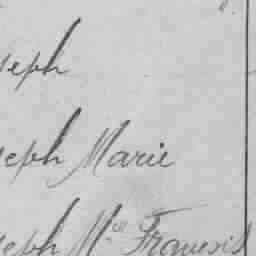 seph
seph Marie
seph M.ie François